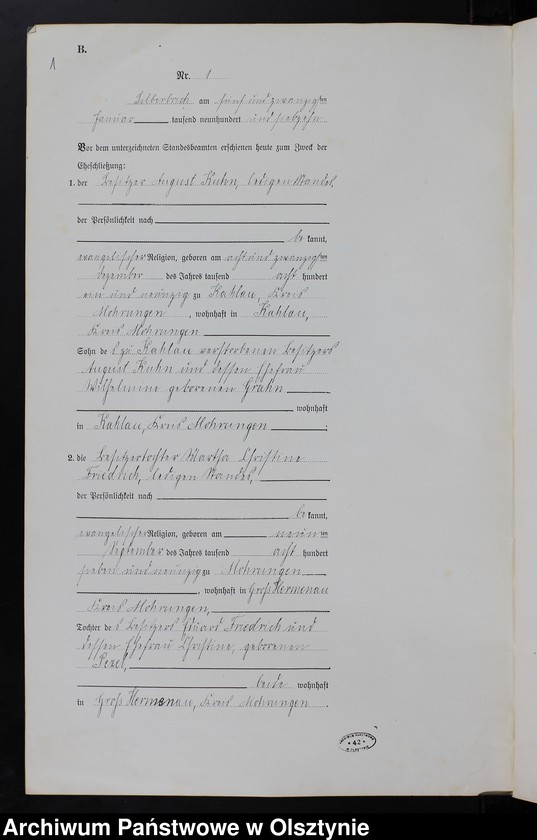 B.
1
Nr. 1
Silberbach am fünf und zwanzigsten
Januar tausend neunhundert und siebzehn
Vor dem unterzeichneten Standesbeamten erschienen heute zum Zweck der
Eheschließung:
1. der Besitzer August Kuhn, ledigen Standes,
der Persönlichkeit nach
be kannt,
evangelischer Religion, geboren am acht und zwanzigsten
Dezember des Jahres tausend acht hundert
ein und neunzig zu Kahlau, Kreis
Mohrungen, wohnhaft in Kahlau,
Kreis Mohrungen
Sohn des zu Kahlau verstorbenen Besitzers
August Kuhn und dessen Ehefrau
Wilhelmine geborenen Grahn
wohnhaft
in Kahlau, Kreis Mohrungen ;
2. die Besitzertochter Martha Christine
Friedrich, ledigen Standes,
der Persönlichkeit nach
be kannt,
evangelischer Religion, geboren am neunten
September des Jahres tausend acht hundert
sieben und neunzig zu Mohrungen
, wohnhaft in Groß Hermenau
Kreis Mohrungen,
Tochter des Besitzers Eduard Friedrich und
dessen Ehefrau Christine, geborenen
Pezel,
beide wohnhaft
in Groß Hermenau, Kreis Mohrungen .
* 42 *
Archiwum Państwowe w Olsztynie